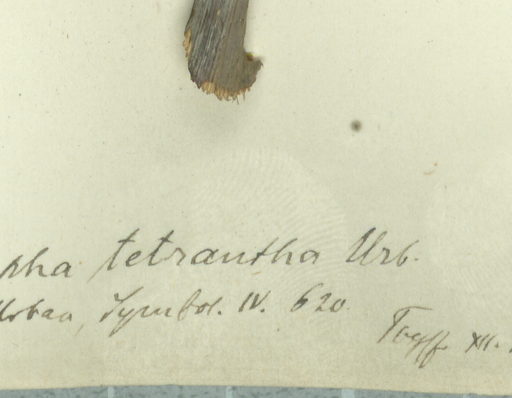 pha tetrantha Urb.
Urban, Symbol. IV. 620
XII.